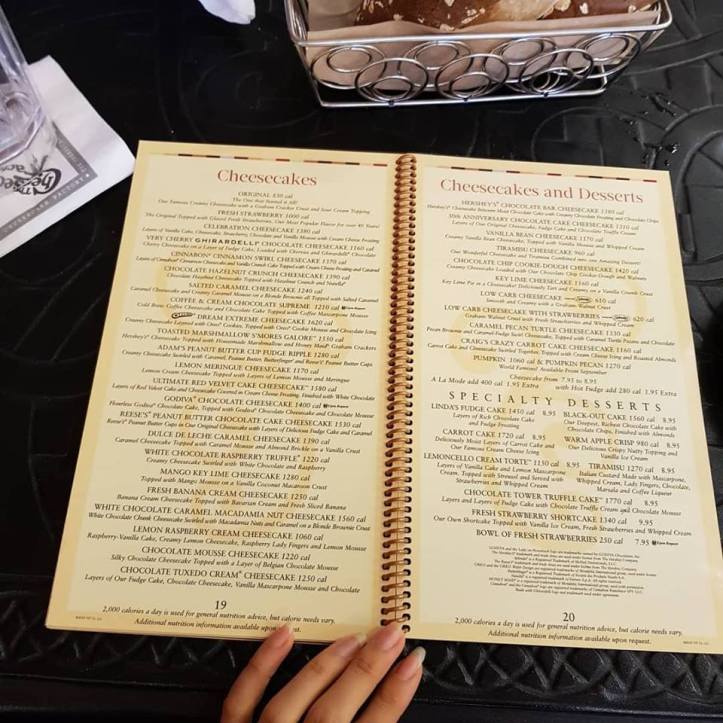 Cheesecakes
ORIGINAL 830 cal
The One that Started it All!
Our Famous Creamy Cheesecake with a Graham Cracker Crust and Sour Cream Topping
FRESH STRAWBERRY 1000 cal
The Original Topped with Glazed Fresh Strawberries, Our Most Popular Flavor for over 40 Years!
CELEBRATION CHEESECAKE 1380 cal
Layers of Vanilla Cake, Cheesecake, Strawberry, Chocolate and Vanilla Mousse with Cream Cheese Frosting
VERY CHERRY GHIRARDELLI® CHOCOLATE CHEESECAKE 1160 cal
Cherry Cheesecake on a Layer of Fudge Cake, Loaded with Cherries and Ghirardelli® Chocolate
CINNABON® CINNAMON SWIRL CHEESECAKE 1370 cal
Layers of Cinnabon® Cinnamon Cheesecake and Vanilla Crunch Cake Topped with Cream Cheese Frosting and Caramel
CHOCOLATE HAZELNUT CRUNCH CHEESECAKE 1390 cal
Chocolate Hazelnut Cheesecake Topped with Hazelnut Crunch and Nutella®
SALTED CARAMEL CHEESECAKE 1240 cal
Caramel Cheesecake and Creamy Caramel Mousse on a Blonde Brownie all Topped with Salted Caramel
COFFEE & CREAM CHOCOLATE SUPREME 1210 cal
Cold Brew Coffee Cheesecake and Chocolate Cake Topped with Coffee Mascarpone Mousse
DREAM EXTREME CHEESECAKE 1620 cal
Creamy Cheesecake Layered with Oreo® Cookies, Topped with Oreo® Cookie Mousse and Chocolate Icing
TOASTED MARSHMALLOW S'MORES GALORE™ 1550 cal
Hershey's® Cheesecake Topped with Housemade Marshmallow and Honey Maid® Graham Crackers
ADAM'S PEANUT BUTTER CUP FUDGE RIPPLE 1280 cal
Creamy Cheesecake Swirled with Caramel, Peanut Butter, Butterfinger® and Reese's® Peanut Butter Cups
LEMON MERINGUE CHEESECAKE 1170 cal
Lemon Cream Cheesecake Topped with Layers of Lemon Mousse and Meringue
ULTIMATE RED VELVET CAKE CHEESECAKE™ 1580 cal
Layers of Red Velvet Cake and Cheesecake Covered in Cream Cheese Frosting, Finished with White Chocolate
GODIVA® CHOCOLATE CHEESECAKE 1400 cal
Flourless Godiva® Chocolate Cake, Topped with Godiva® Chocolate Cheesecake and Chocolate Mousse
REESE'S® PEANUT BUTTER CHOCOLATE CAKE CHEESECAKE 1530 cal
Reese's® Peanut Butter Cups in Our Original Cheesecake with Layers of Delicious Fudge Cake and Caramel
DULCE DE LECHE CARAMEL CHEESECAKE 1390 cal
Caramel Cheesecake Topped with Caramel Mousse and Almond Brickle on a Vanilla Crust
WHITE CHOCOLATE RASPBERRY TRUFFLE® 1220 cal
Creamy Cheesecake Swirled with White Chocolate and Raspberry
MANGO KEY LIME CHEESECAKE 1280 cal
Topped with Mango Mousse on a Vanilla Coconut Macaroon Crust
FRESH BANANA CREAM CHEESECAKE 1250 cal
Banana Cream Cheesecake Topped with Bavarian Cream and Fresh Sliced Banana
WHITE CHOCOLATE CARAMEL MACADAMIA NUT CHEESECAKE 1560 cal
White Chocolate Chunk Cheesecake Swirled with Macadamia Nuts and Caramel on a Blonde Brownie Crust
LEMON RASPBERRY CREAM CHEESECAKE 1060 cal
Raspberry-Vanilla Cake, Creamy Lemon Cheesecake, Raspberry Lady Fingers and Lemon Mousse
CHOCOLATE MOUSSE CHEESECAKE 1220 cal
Silky Chocolate Cheesecake Topped with a Layer of Belgian Chocolate Mousse
CHOCOLATE TUXEDO CREAM® CHEESECAKE 1250 cal
Layers of Our Fudge Cake, Chocolate Cheesecake, Vanilla Mascarpone Mousse and Chocolate
19
2,000 calories a day is used for general nutrition advice, but calorie needs vary.
Additional nutrition information available upon request.
Cheesecakes and Desserts
HERSHEY'S® CHOCOLATE BAR CHEESECAKE 1380 cal
Hershey's® Cheesecake Between Moist Chocolate Cake with Creamy Chocolate Frosting and Chocolate Chips
30th ANNIVERSARY CHOCOLATE CAKE CHEESECAKE 1310 cal
Layers of Our Original Cheesecake, Fudge Cake and Chocolate Truffle Cream
VANILLA BEAN CHEESECAKE 1170 cal
Creamy Vanilla Bean Cheesecake, Topped with Vanilla Mousse and Whipped Cream
TIRAMISU CHEESECAKE 960 cal
Our Wonderful Cheesecake and Tiramisu Combined into one Amazing Dessert!
CHOCOLATE CHIP COOKIE-DOUGH CHEESECAKE 1420 cal
Creamy Cheesecake Loaded with Our Chocolate Chip Cookie-Dough and Walnuts
KEY LIME CHEESECAKE 1160 cal
Key Lime Pie in a Cheesecake! Deliciously Tart and Creamy on a Vanilla Crumb Crust
LOW CARB CHEESECAKE 610 cal
Smooth and Creamy with a Graham Walnut Crust
LOW CARB CHEESECAKE WITH STRAWBERRIES 620 cal
Graham Walnut Crust with Fresh Strawberries and Whipped Cream
CARAMEL PECAN TURTLE CHEESECAKE 1330 cal
Pecan Brownie and Caramel-Fudge Swirl Cheesecake, Topped with Caramel Turtle Pecans and Chocolate
CRAIG'S CRAZY CARROT CAKE CHEESECAKE 1160 cal
Carrot Cake and Cheesecake Swirled Together, Topped with Cream Cheese Icing and Roasted Almonds
PUMPKIN 1060 cal & PUMPKIN PECAN 1270 cal
World Famous! Available From September
Cheesecake from 7.95 to 8.95
A La Mode add 400 cal 1.95 Extra with Hot Fudge add 280 cal 1.95 Extra
SPECIALTY DESSERTS
LINDA'S FUDGE CAKE 1450 cal 8.95
Layers of Rich Chocolate Cake
and Fudge Frosting
BLACK-OUT CAKE 1560 cal 8.95
Our Deepest, Richest Chocolate Cake with
Chocolate Chips, Finished with Almonds
CARROT CAKE 1720 cal 8.95
Deliciously Moist Layers of Carrot Cake and
Our Famous Cream Cheese Icing
WARM APPLE CRISP 980 cal 8.95
Our Delicious Crispy Nutty Topping and
Vanilla Ice Cream
LEMONCELLO CREAM TORTE™ 1150 cal 8.95
Layers of Vanilla Cake and Lemon Mascarpone
Cream, Topped with Streusel and Served with
Strawberries and Whipped Cream
TIRAMISU 1270 cal 8.95
Italian Custard Made with Mascarpone,
Whipped Cream, Lady Fingers, Chocolate,
Marsala and Coffee Liqueur
CHOCOLATE TOWER TRUFFLE CAKE™ 1770 cal 8.95
Layers and Layers of Fudge Cake with Chocolate Truffle Cream and Chocolate Mousse
FRESH STRAWBERRY SHORTCAKE 1340 cal 9.95
Our Own Shortcake Topped with Vanilla Ice Cream, Fresh Strawberries and Whipped Cream
BOWL OF FRESH STRAWBERRIES 250 cal 7.95
20
2,000 calories a day is used for general nutrition advice, but calorie needs vary.
Additional nutrition information available upon request.